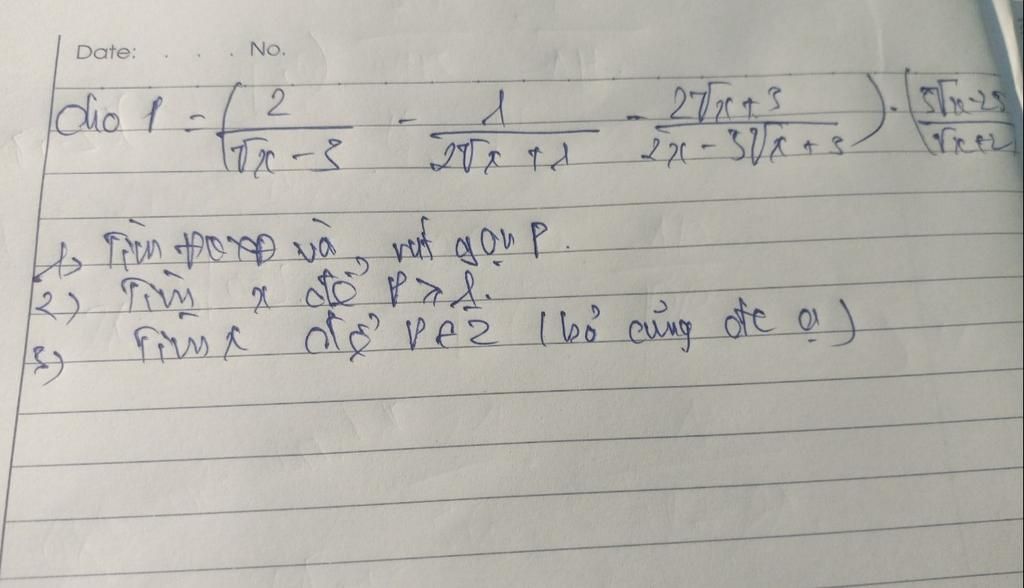 Date: . . . No.
Cho P = (2/(√x - 3) - 1/(2√x + 1) - (2√x + 3)/(2x - 3√x + 3)) . (5√x - 25)/(√x + 2)
1) Tìm ĐCXĐ và rút gọn P.
2) Tìm x để P > 1.
3) Tìm x để P ∈ Z (bỏ cũng đc ạ)